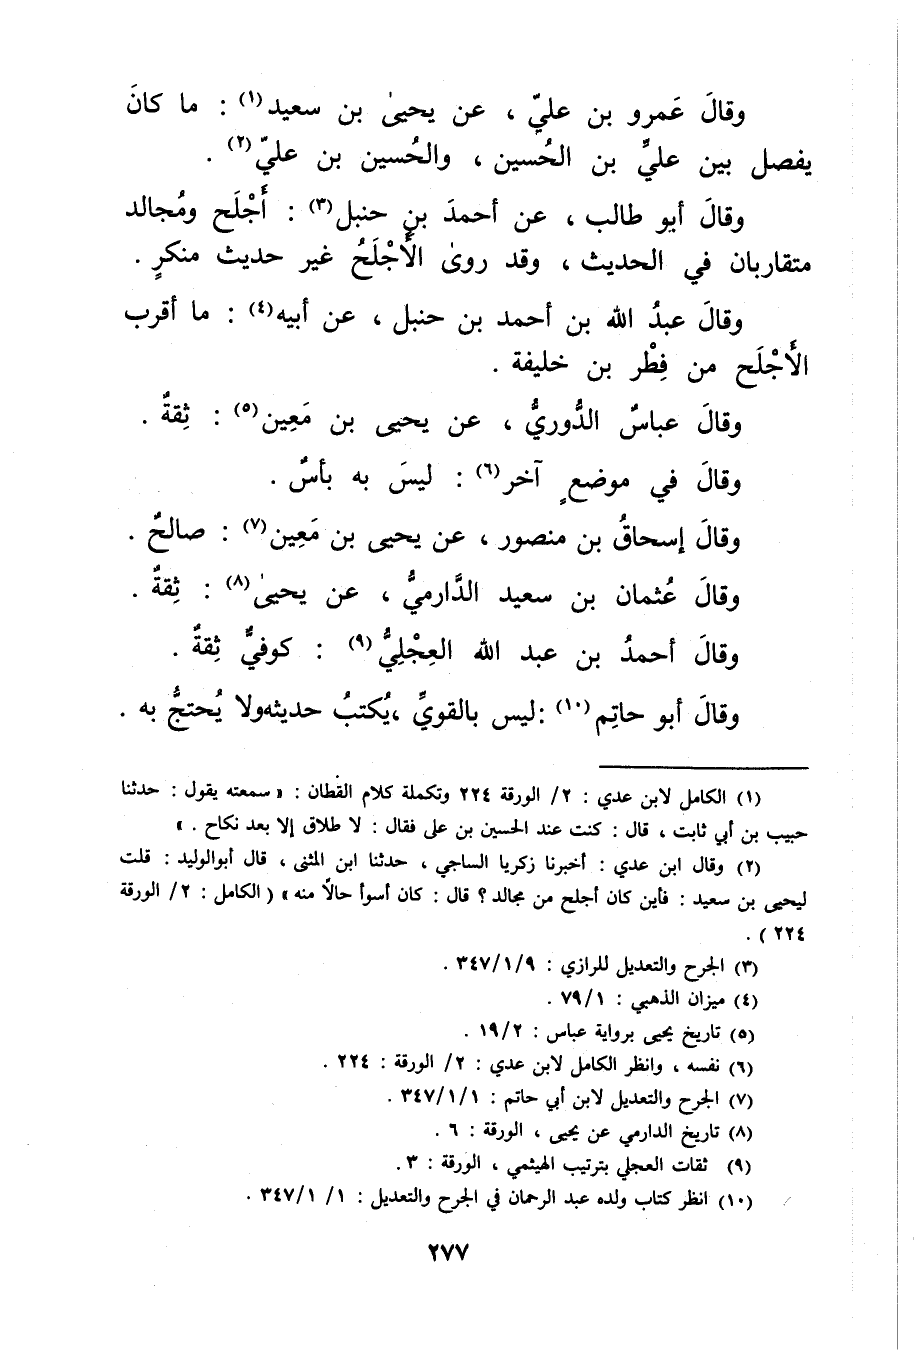 وقالَ عَمرو بن عليّ ، عن يحيىٰ بن سعيد(١) : ما كانَ
يفصل بين عليِّ بن الحُسين ، والحُسين بن عليّ(٢) .
وقالَ أبو طالب ، عن أحمدَ بنِ حنبل(٣) : أَجْلَح ومُجالد
متقاربان في الحديث ، وقد روىٰ الأَجْلَحُ غير حديث منكرٍ .
وقالَ عبدُ الله بن أحمد بن حنبل ، عن أبيه(٤) : ما أقرب
الأَجْلَح من فِطْر بن خليفة .
وقالَ عباسٌ الدُّوريُّ ، عن يحيى بن مَعِين(٥) : ثِقةٌ .
وقالَ في موضعٍ آخر(٦) : ليسَ به بأسٌ .
وقالَ إسحاقُ بن منصور ، عن يحيى بن مَعِين(٧) : صالحٌ .
وقالَ عُثمان بن سعيد الدَّارميُّ ، عن يحيىٰ(٨) : ثِقةٌ .
وقالَ أحمدُ بن عبد الله العِجْلِيُّ(٩) : كوفيٌّ ثِقةٌ .
وقالَ أبو حاتِم(١٠) :ليس بالقويِّ ،يُكتبُ حديثه ولا يُحتجُّ به .
(١) الكامل لابن عدي : ٢/ الورقة ٢٢٤ وتكملة كلام القطان : « سمعته يقول : حدثنا
حبيب بن أبي ثابت ، قال : كنت عند الحسين بن على فقال : لا طلاق إلا بعد نكاح . »
(٢) وقال ابن عدي : أخبرنا زكريا الساجي ، حدثنا ابن المثنى ، قال أبوالوليد : قلت
ليحيى بن سعيد : فأين كان أجلح من مجالد ؟ قال : كان أسوأ حالاً منه » ( الكامل : ٢/ الورقة
٢٢٤ ) .
(٣) الجرح والتعديل للرازي : ٣٤٧/١/٩ .
(٤) ميزان الذهبي : ٧٩/١ .
(٥) تاريخ يحيى برواية عباس : ١٩/٢ .
(٦) نفسه ، وانظر الكامل لابن عدي : ٢/ الورقة : ٢٢٤ .
(٧) الجرح والتعديل لابن أبي حاتم : ٣٤٧/١/١ .
(٨) تاريخ الدارمي عن يحيى ، الورقة : ٦ .
(٩) ثقات العجلي بترتيب الهيثمي ، الورقة : ٣ .
(١٠) انظر كتاب ولده عبد الرحمان في الجرح والتعديل : ١/ ٣٤٧/١ .
٢٧٧